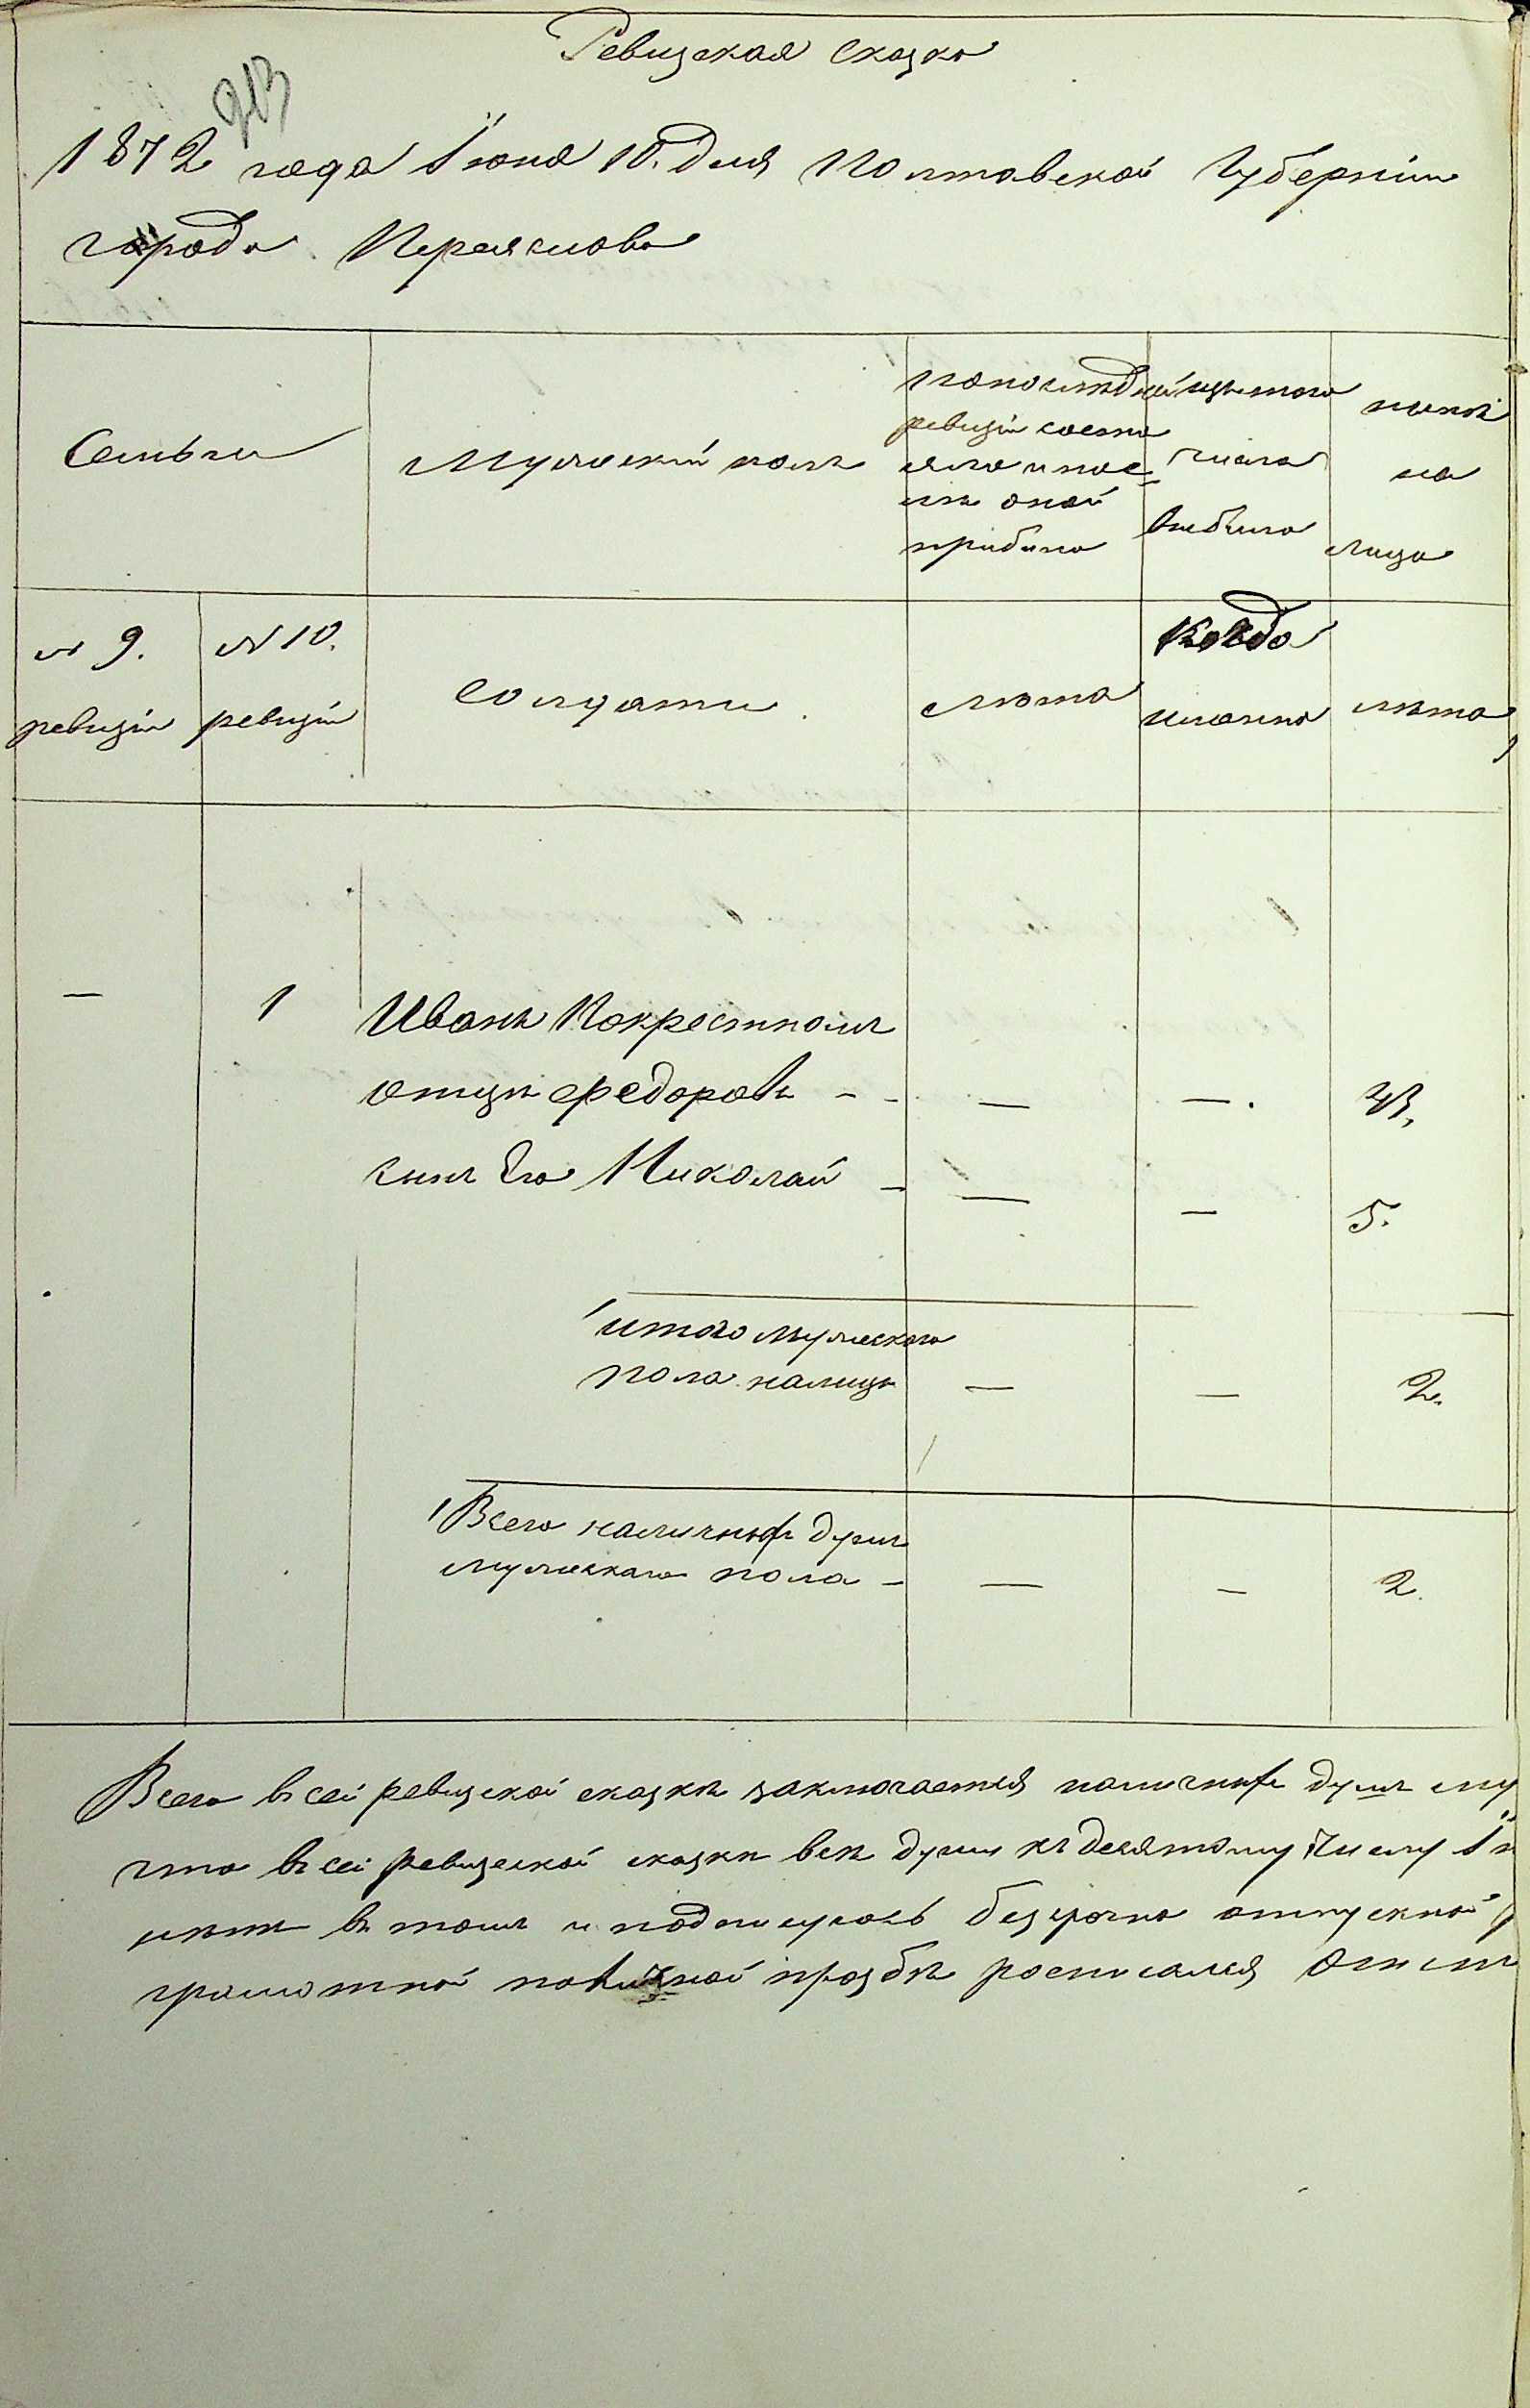 Ревизская сказка
213
1872 года Іюня 10. дня Полтавской Губерніи
города Переяслова
Семьи
Мужескій полъ
по последней
ревизіи состо
яло и пос
лѣ оной
прибыло
изъ того
числа
выбыло
нынѣ
на
лицо
№ 9.
ревизіи
№ 10.
ревизіи
Солдаты.
лѣта
Когда
именно
лѣта
— 1 Иванъ Покрестному
отцу Федоровъ - - — —. 43.
сынъ Его Николай - — — 5.
итого мужескаго
пола налицо — — 2.
Всего наличныхъ душъ
мужескаго пола - — - 2.
Всего в сей ревизской сказкѣ заключается наличныхъ душъ му
что въ сей ревизской сказкѣ всѣ души къ десятому числу Ію
нѣтъ въ томъ и подпишуюсь безсрочно отпускной
грамотной по личной прозбѣ росписался